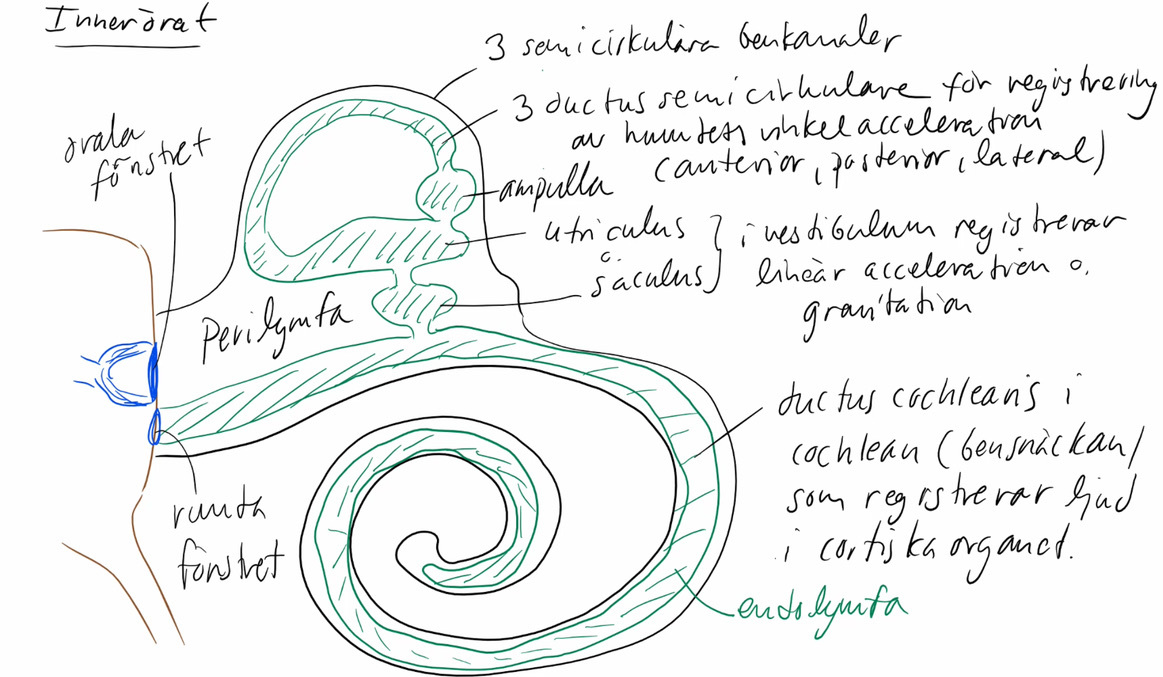 Innerörat
3 semicirkulära benkanaler
3 ductus semicirkulare för registrering
av huvudets vinkelacceleration
(anterior, posterior, lateral)
ovala
fönstret
ampulla
utriculus
o.
sacculus
i vestibulum registrerar
linjär acceleration o.
gravitation
Perilymfa
ductus cochlearis i
cochlean (bensnäckan)
som registrerar ljud
i cortiska organet.
runda
fönstret
endolymfa